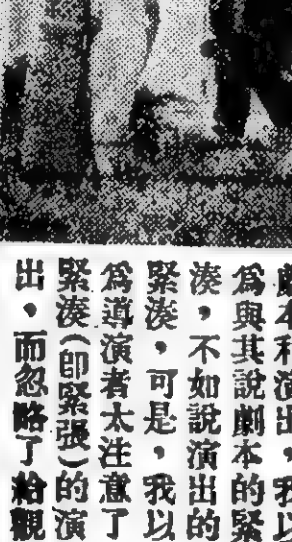 劇本和演出，我以
爲與其說劇本的緊
湊，不如說演出的
緊湊，可是，我以
爲導演者太注意了
緊湊（卽緊張）的演
出，而忽略了給觀